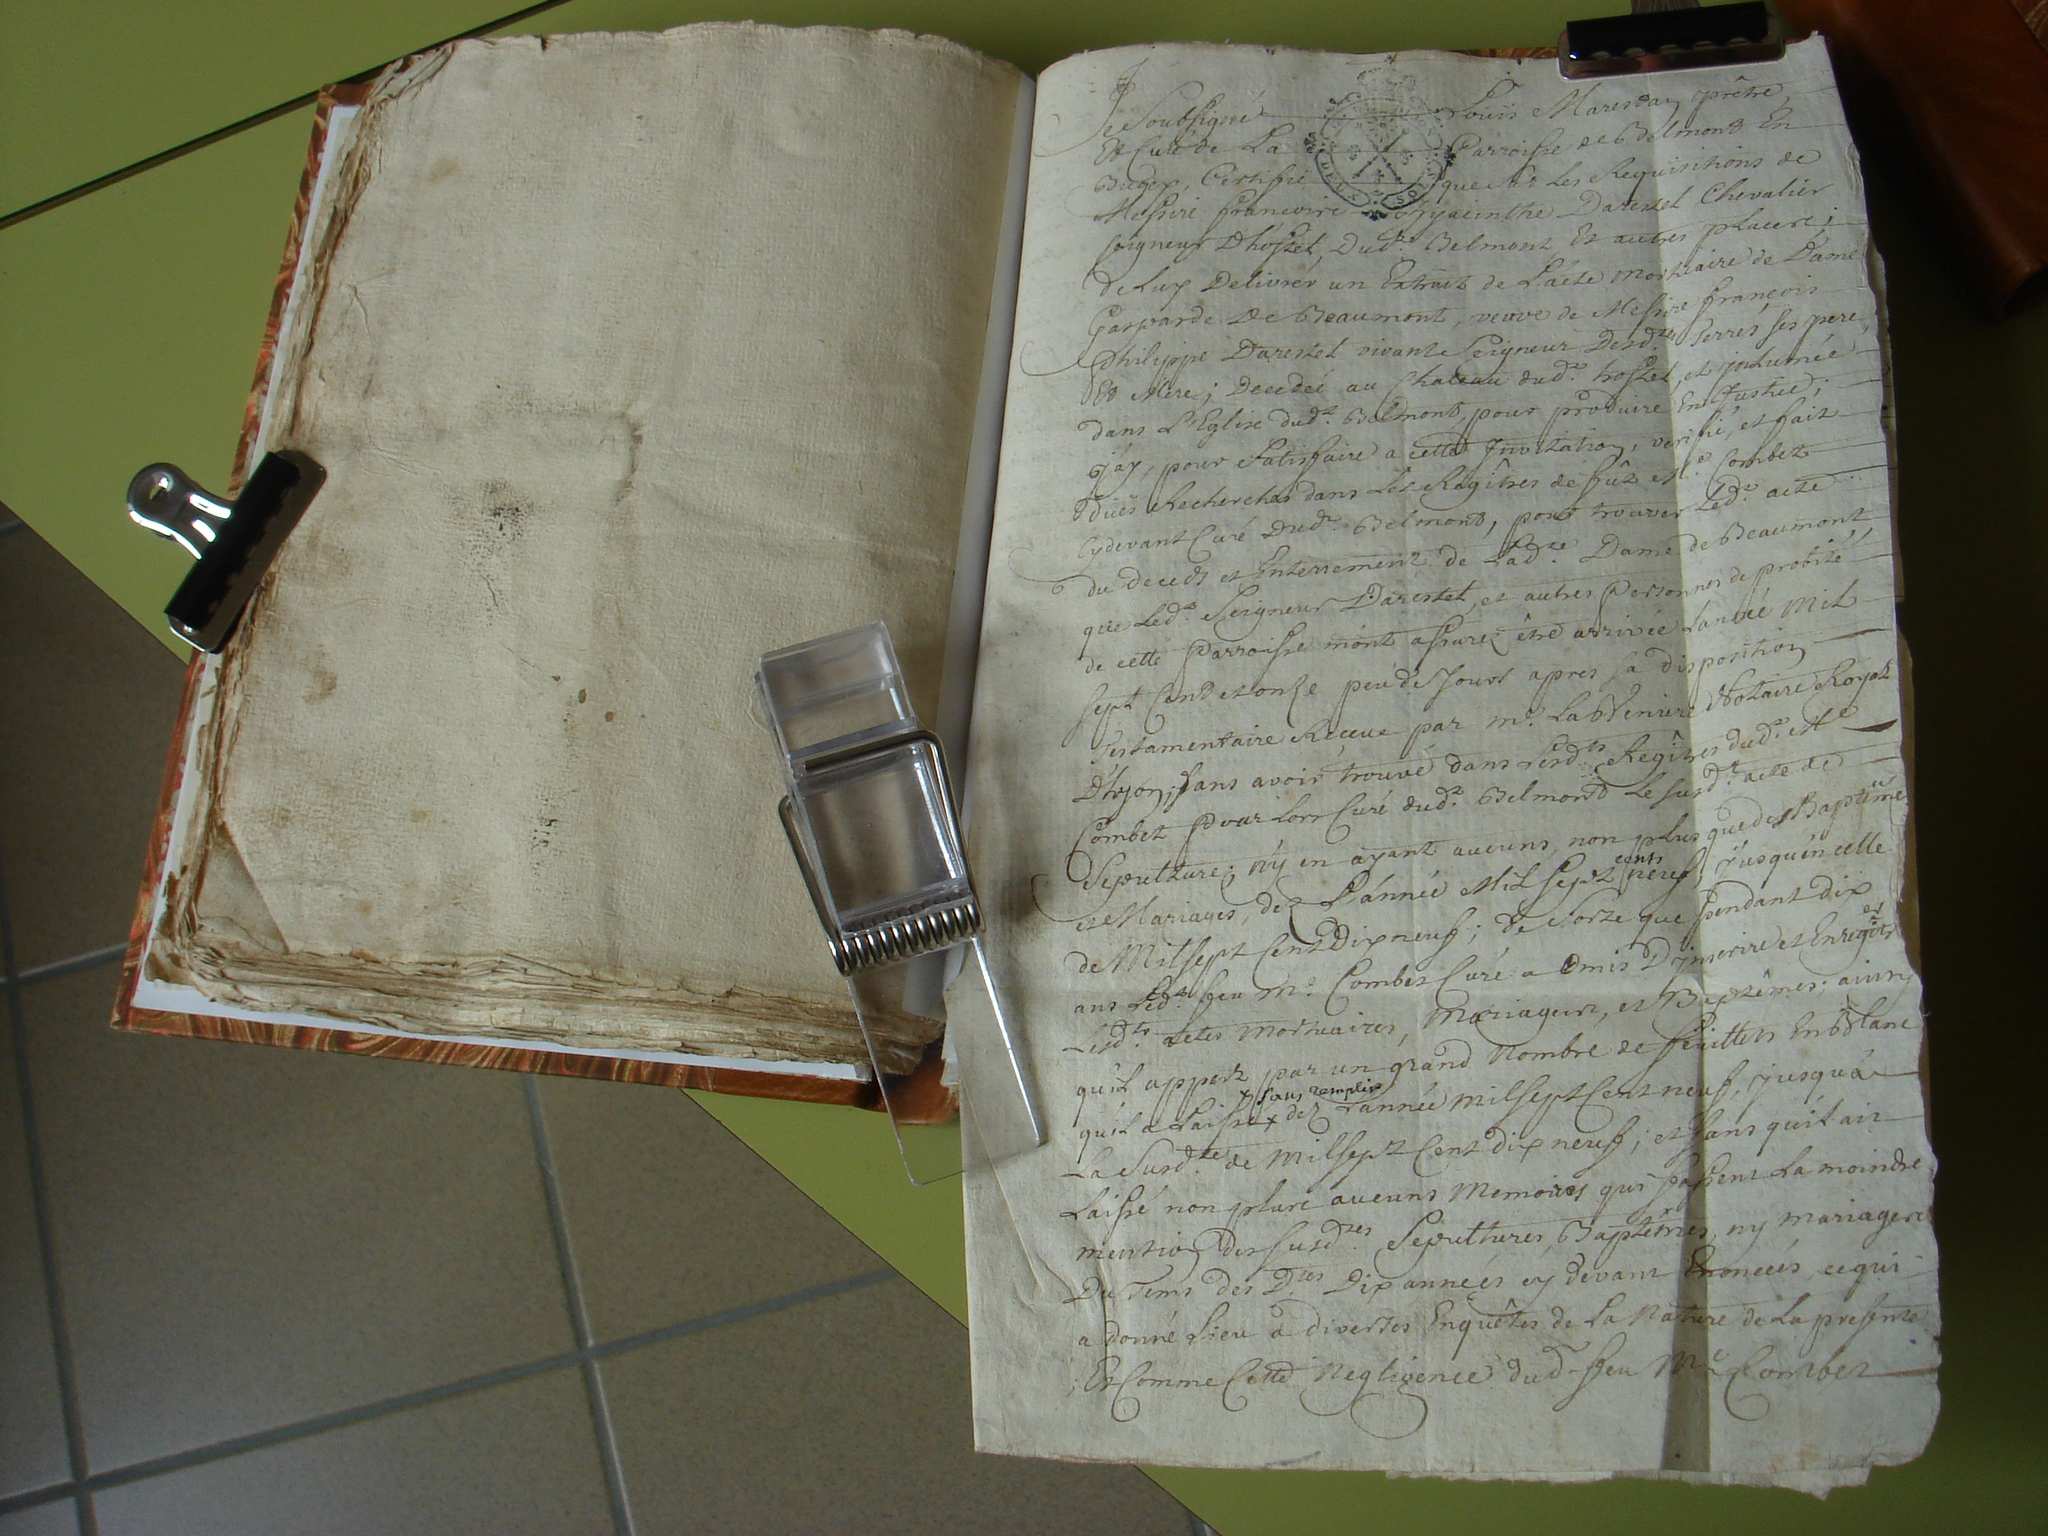 Je Soubsigné Louis Marestan prêtre
Et Curé de La Parroisse de Belmond En
Bugey, Certifie que sur Les Requisitions de
Messire francoire hyacinthe Darestel Chevalier
seigneur D'hostel, Dud.t Belmont Et autres places;
de Luy Delivrer un Extrait de L'acte mortuaire de Dame
Gasparde De Beaumont, veuve de Messire françois
Philippe Darestel vivant Seigneur Desd.tes terres ses pere,
Et Mere; Decedeé au Chateau dud.t hostel, et inhumée
dans L'Eglise dud.t Belmond, pour produire En Justice;
j'ay, pour Satisfaire a cette Invitation, verifié, et fait
dües Recherches dans Les Regîtres de fût M.re Combet
Cydevant Curé Dud.t Belmond, pour trouver Led.t acte
du deceds et Enterrement de Lad.te Dame de Beaumont,
que Led.t Seigneur Darestel, et autres Personnes de probité
de cette Parroisse m'ont assuréz être arrivée L'année Mil
Sept Cent et onze peu de Jours apres sa disposition
Testamentaire Receue par m.e Notaire Royal
sans avoir trouvé dans Lesd.ts Regîtres dud.t M.re
Combet Pour lors Curé dud.t Belmond Le susd.t acte de
Sepulture; n'y en ayant aucuns, non plus que des Baptêmes
et Mariages, dez L'année Mil Sept cents neuf, jusqu'en celle
de Mil sept Cent Dix neuf; de Sorte que pendant dix
ans Led.t feu M.e Combet Curé a omis D'jnscrire et Enregîtrer
Lesd.ts actes mortuaires, Mariages, et Baptêmes; ainsy
qu'il appert par un grand Nombre de feuillets En Blanc
qu'il a Laissé x sans remplir dez L'année mil sept Cent neuf, jusqu'a
La Susd.te de Mil sept Cent dix neuf; et sans qu'il ait
Laissé non plus aucuns Memoires qui fassent La moindre
mention des susd.tes Sepultures, Baptêmes, ny mariages
Du Tems des D.tes Dix années cy devant Enoncées, ce qui
a donné Lieu a diverses Enquêtes de La Nature de La presente
; Et Comme Cette Negligence dud.t feu M.e Combet